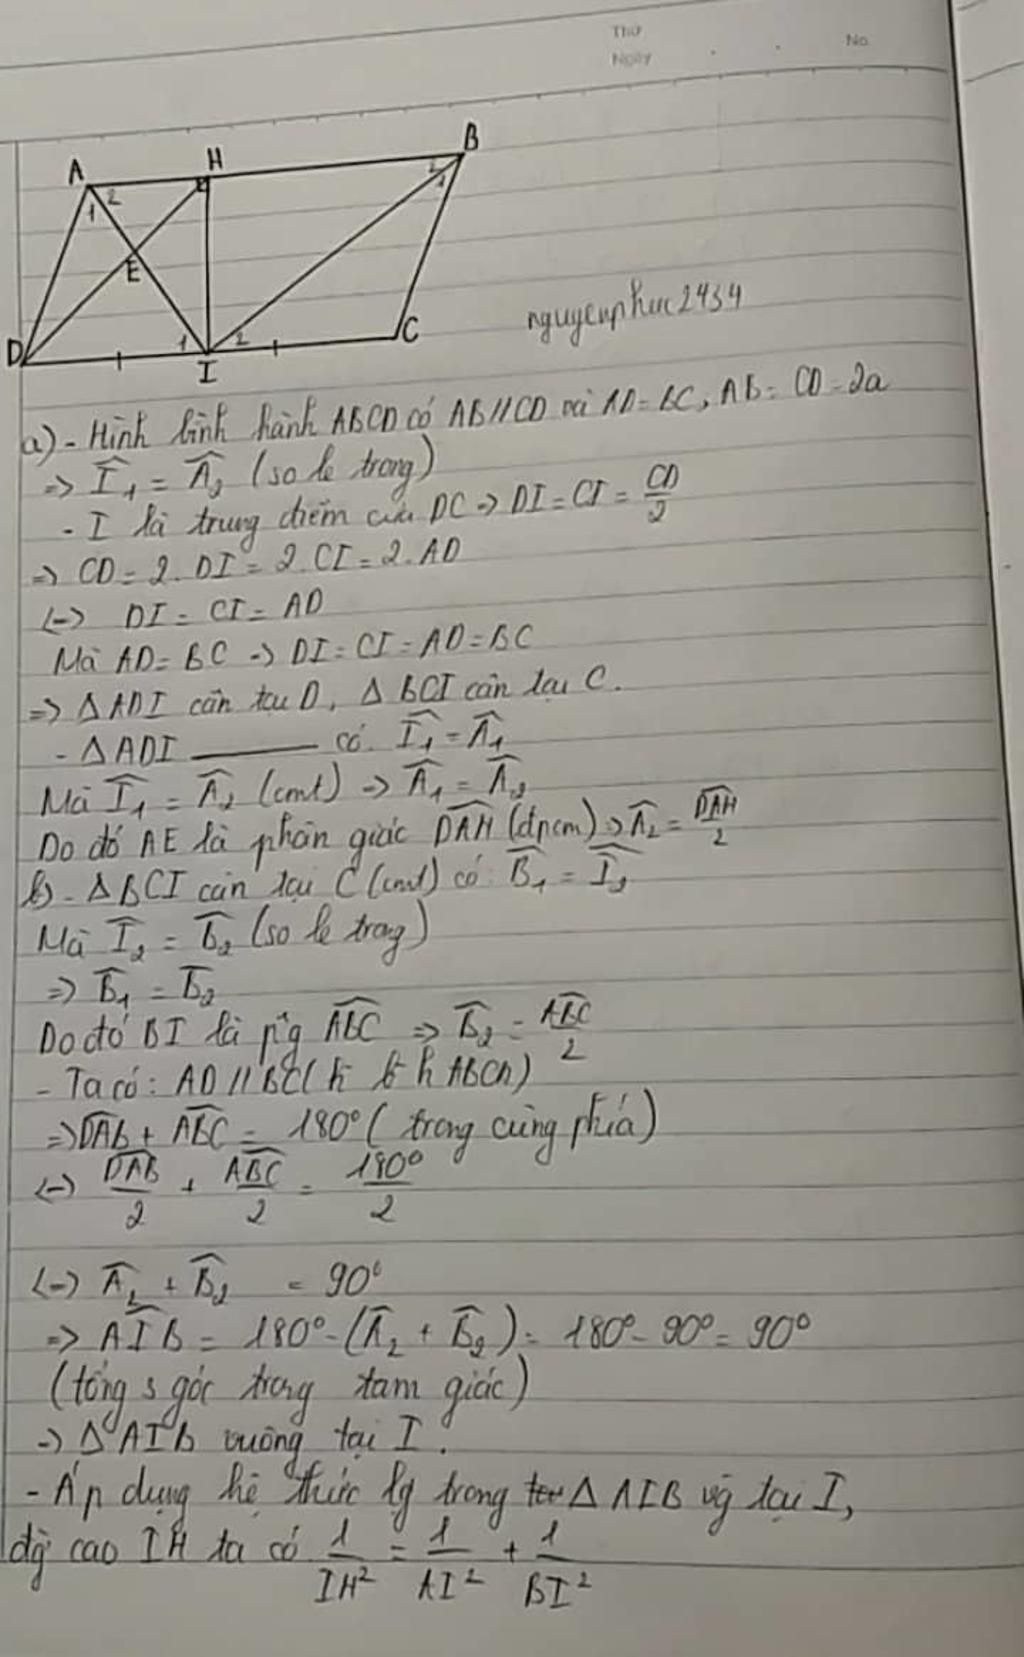 Thứ
Ngày
No.
A H B
2 1
2 1
E
D 1 2 C
I
nguyenphuc2434
a) - Hình bình hành ABCD có AB//CD và AD=BC, AB= CD=2a
=> Î₁ = Â₂ (so le trong)
- I là trung điểm của DC -> DI = CI = CD/2
=> CD = 2.DI = 2.CI = 2.AD
<-> DI = CI = AD
Mà AD = BC -> DI = CI = AD = BC
=> Δ ADI cân tại D, Δ BCI cân tại C.
- Δ ADI ——— có Î₁ = Â₁
Mà Î₁ = Â₂ (cmt) -> Â₁ = Â₂
Do đó AE là phân giác DAH (đpcm) -> Â₂ = DAH/2
b) - Δ BCI cân tại C (cmt) có: B̂₁ = Î₂
Mà Î₂ = B̂₂ (so le trong)
=> B̂₁ = B̂₂
Do đó BI là p̂g ABC => B̂₂ = ABC/2
- Ta có: AD // BC ( h b h ABCD)
=> DAB + ABC = 180° ( trong cùng phía)
<-> DAB/2 + ABC/2 = 180°/2
<-> Â₂ + B̂₂ = 90°
=> AIB = 180° - (Â₂ + B̂₂) = 180° - 90° = 90°
(tổng 3 góc trong tam giác)
-> Δ AIB vuông tại I.
- Áp dụng hệ thức lg trong Δ AIB vg tại I,
đg cao IH ta có 1/IH² = 1/AI² + 1/BI²